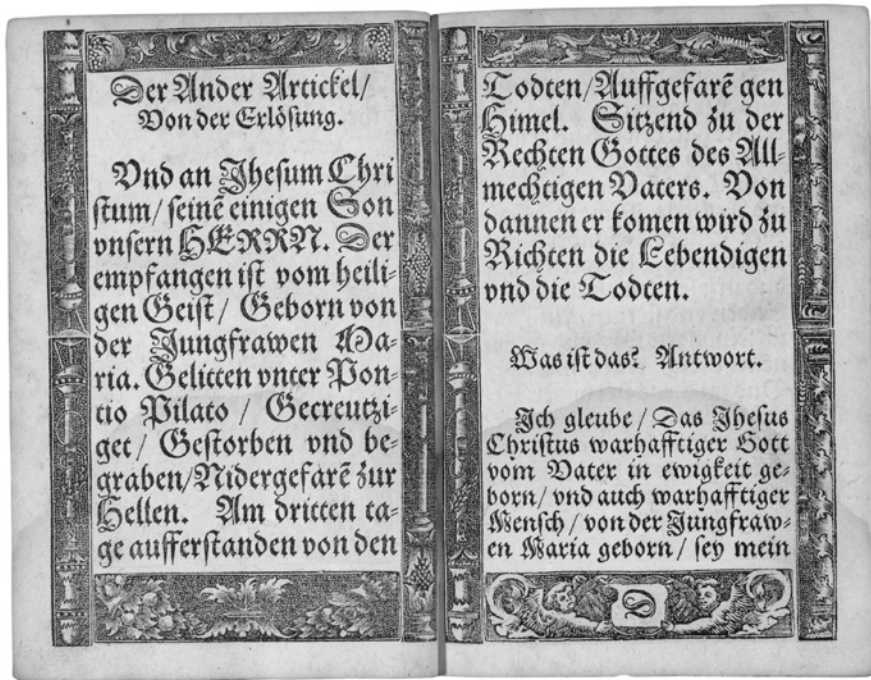 Der Ander Artickel/
Von der Erlösung.
Vnd an Jhesum Chri
stum/ seinē einigen Son
vnsern HERRN. Der
empfangen ist vom heili-
gen Geist/ Geborn von
der Jungfrawen Ma-
ria. Gelitten vnter Pon-
tio Pilato / Gecreutzi-
get/ Gestorben vnd be-
graben/Nidergefarē zur
Hellen. Am dritten ta-
ge aufferstanden von den
Todten/Auffgefarē gen
Himel. Sitzend zu der
Rechten Gottes des All-
mechtigen Vaters. Von
dannen er komen wird zu
Richten die Lebendigen
vnd die Todten.
Was ist das? Antwort.
Jch gleube/ Das Jhesus
Christus warhafftiger Gott
vom Vater in ewigkeit ge-
born/ vnd auch warhafftiger
Mensch/ von der Jungfraw-
en Maria geborn/ sey mein
D